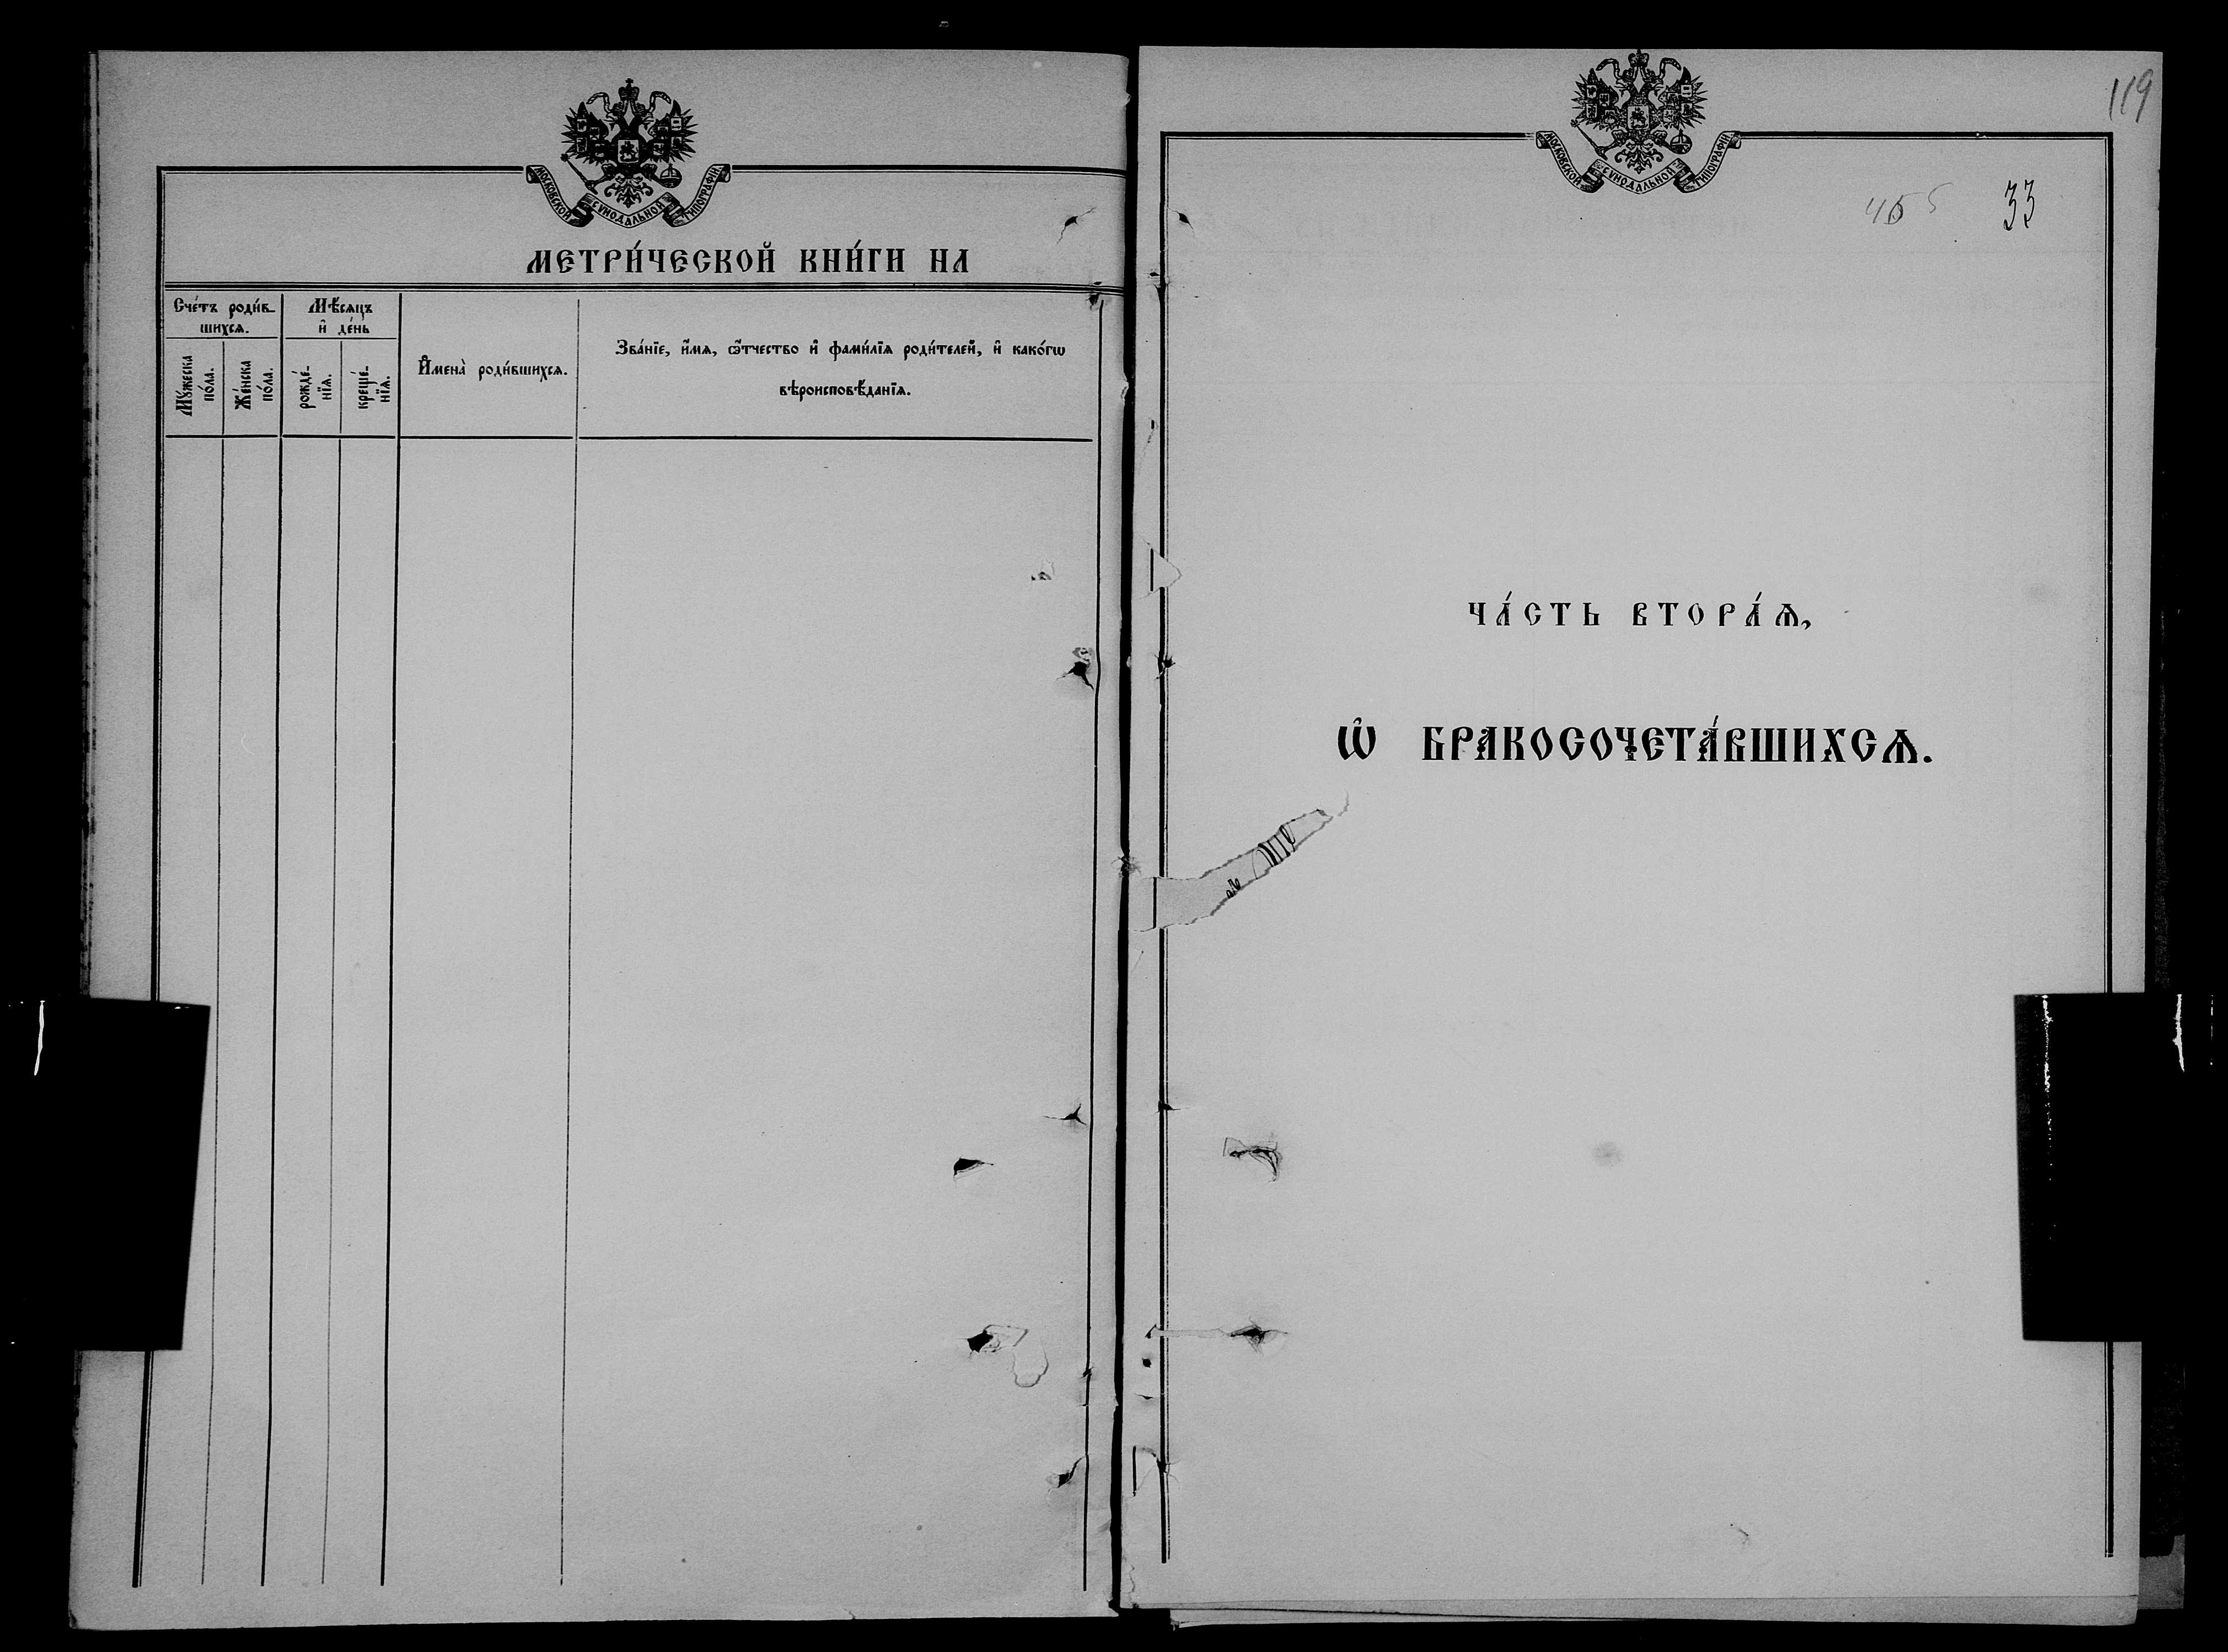 МОСКОВСКОЙ СѴНОДАЛЬНОЙ ТИПОГРАФІИ
МЕТРИ́ЧЕСКОЙ КНИ́ГИ НА
Сче́тъ роди́в-
шихсѧ.
Мѣ́сѧцъ
и҆ де́нь
Мꙋ́жеска
по́ла.
Же́нска
по́ла.
рожде́-
нїѧ.
креще́-
нїѧ.
И҆мена̀ роди́вшихсѧ.
Зва́нїе, и҆́мѧ, ѻ҆́тчество и҆ фами́лїѧ роди́телей, и҆ како́гѡ
вѣроисповѣ́данїѧ.
119
МОСКОВСКОЙ СѴНОДАЛЬНОЙ ТИПОГРАФІИ
33
ЧА́СТЬ ВТОРА́Ѧ,
Ѡ҆ БРАКОСОЧЕТА́ВШИХСѦ.